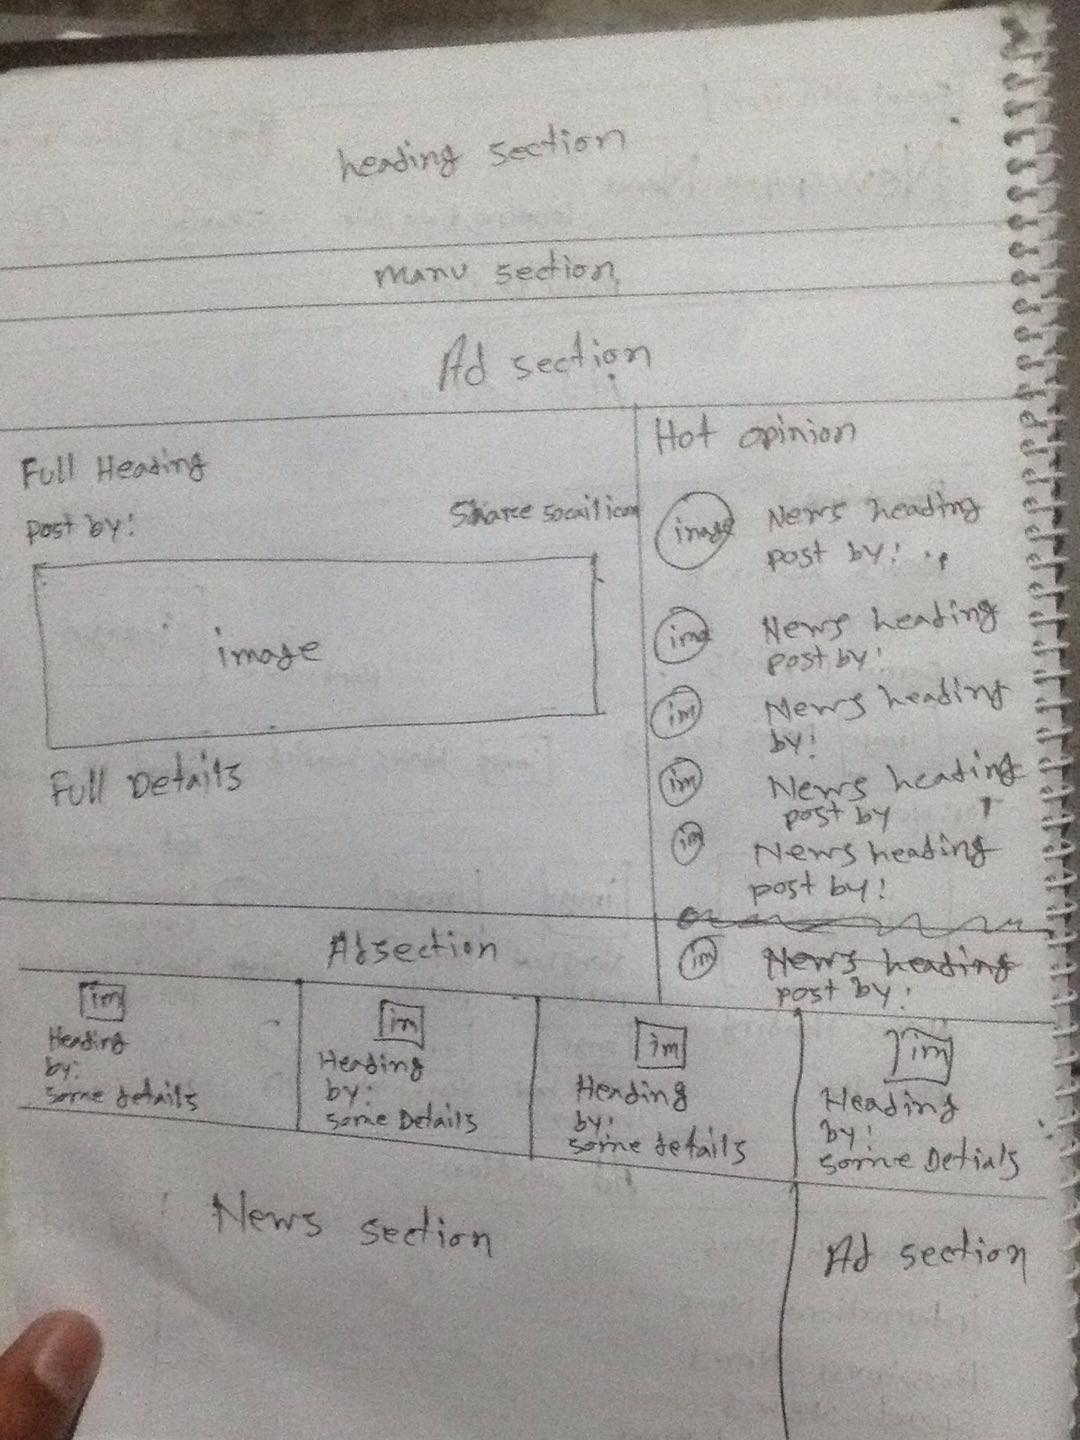 heading section
manu section
Ad section
Full Heading
post by!
Share socailicon
image
Full Details
Hot opinion
image
News heading
post by!
ima
News heading
post by!
im
News heading
by!
im
News heading
post by
im
News heading
post by!
im
News heading
post by!
Adsection
im
Heading
by:
some details
im
Heading
by:
some Details
im
Heading
by!
some details
im
Heading
by!
some Detials
News section
Ad section